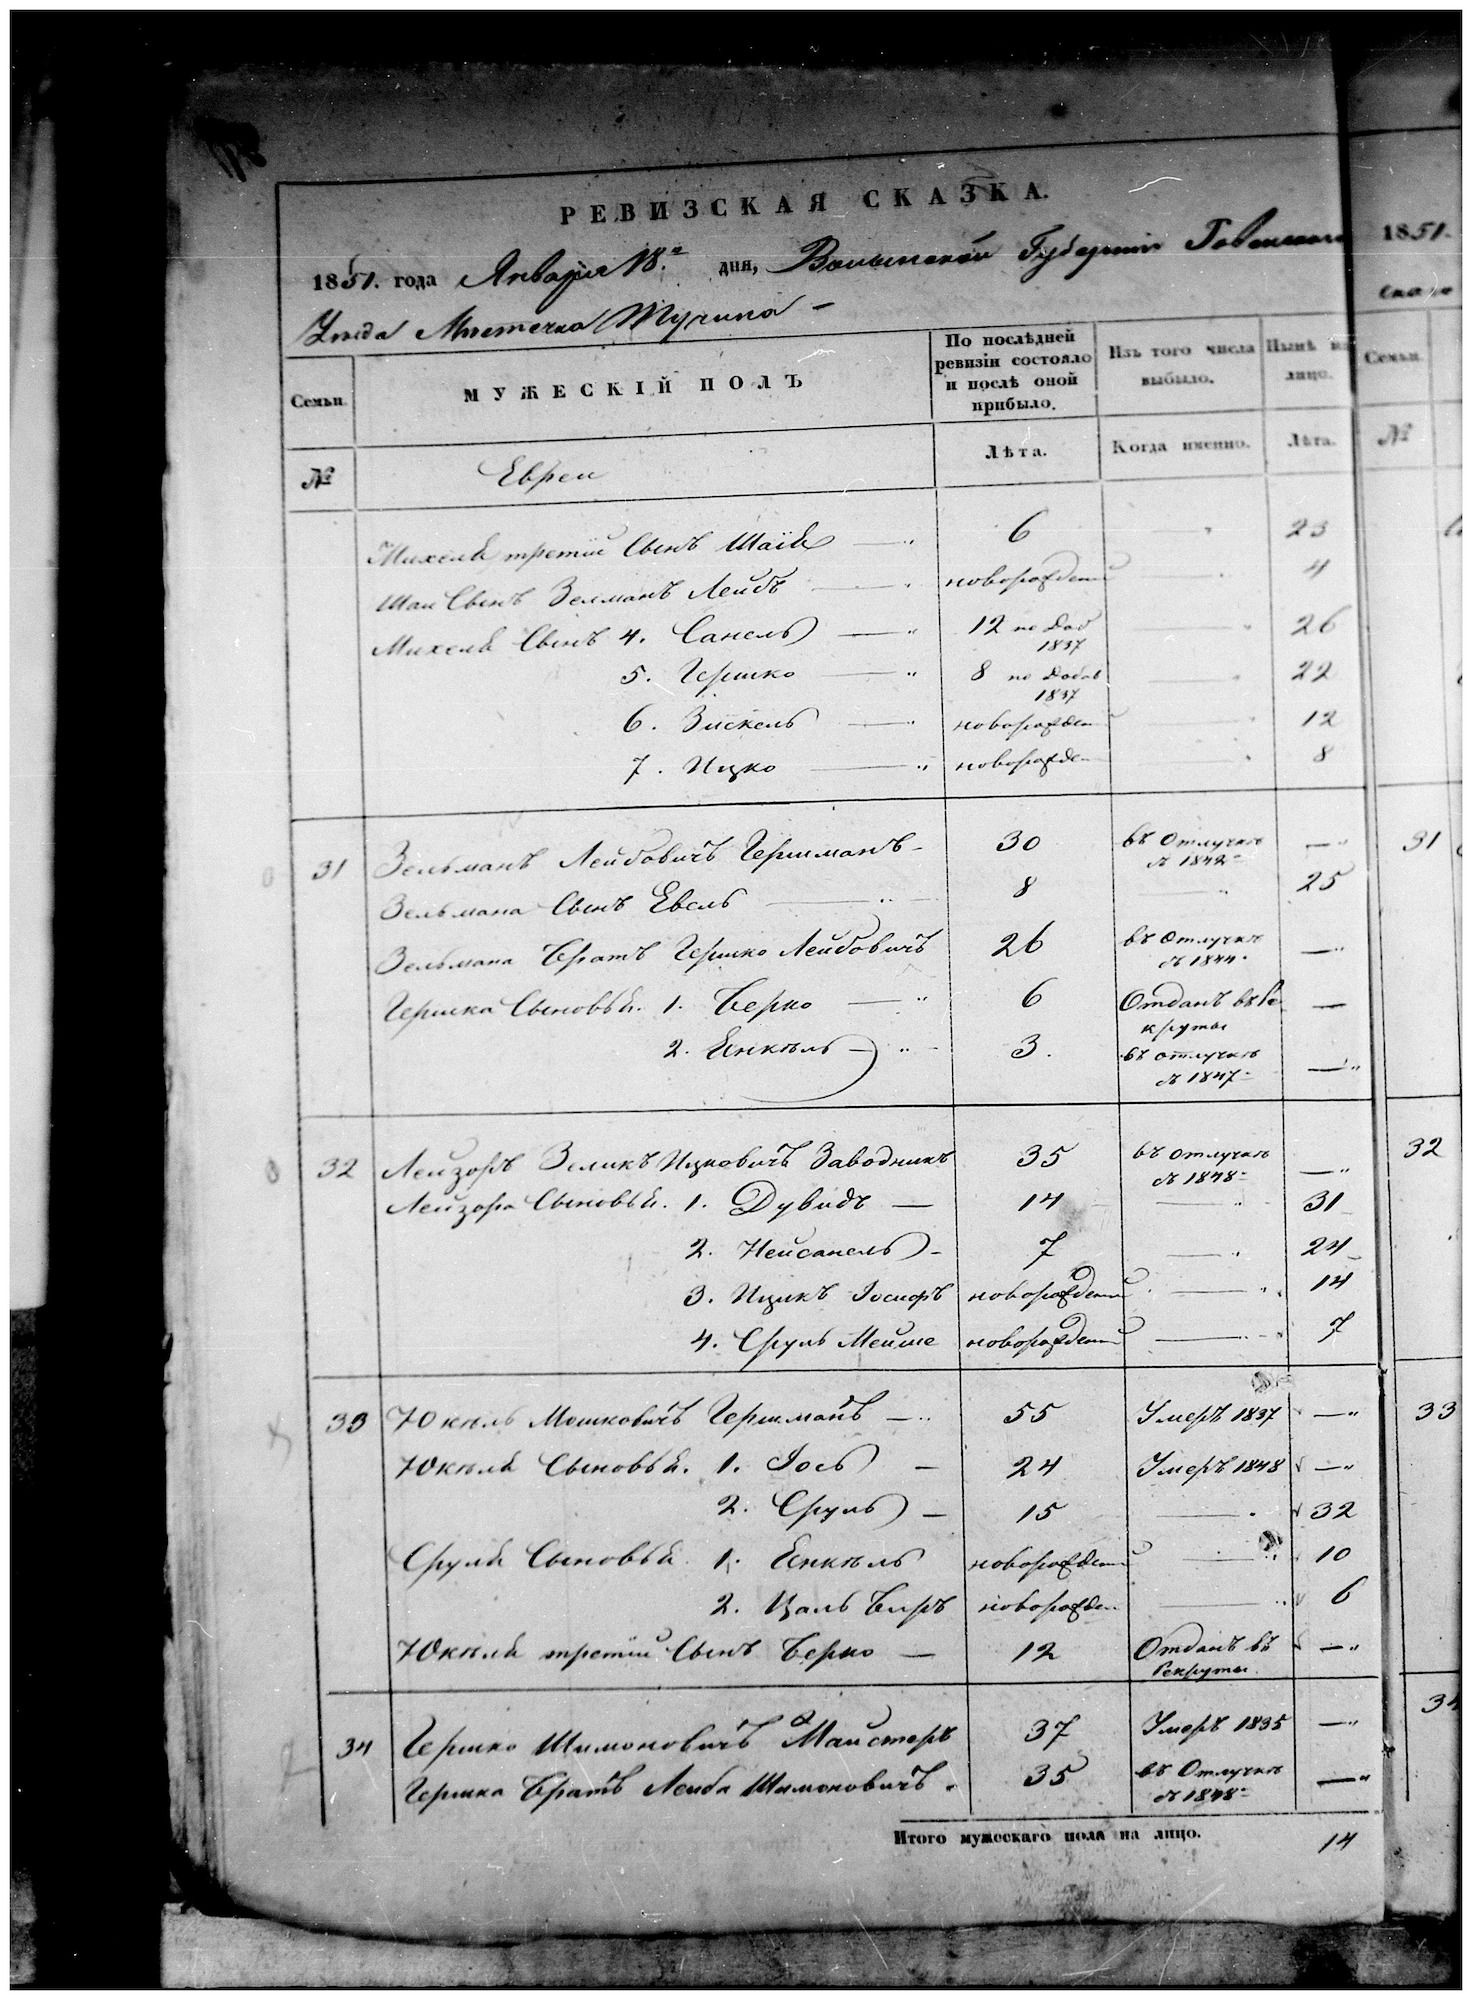 РЕВИЗСКАЯ СКАЗКА.
1851. года Января 18.го дня, Волынской Губернии Ровенского
Уѣзда Мѣстечка Тучина
Семьи. МУЖЕСКІЙ ПОЛЪ По послѣдней ревизіи состояло и послѣ оной прибыло. Изъ того числа выбыло. Нынѣ на лицо.
№ Евреи Лѣта. Когда именно. Лѣта.
Михеля третій Сынъ Шаія — " 6 — " 23
Шаи Сынъ Зелманъ Лейбъ — " новорожденый — " 4
Михеля Сынъ 4. Санель — " 12 по доб 1837 — " 26
5. Гершко — " 8 по добав 1837 — " 22
6. Зискель — " новорожден " 12
7. Ицко — " новорожде — " 8
31 Зельманъ Лейбовичъ Гершманъ - 30 въ Отлучкѣ съ 1842 — "
Зельмана Сынъ Евель — " 8 — " 25
Зельмана Братъ Гершко Лейбовичъ 26 въ Отлучкѣ съ 1844 — "
Гершка Сыновья. 1. Берко — " 6 Отданъ въ Рекруты —
2. Янкѣль — " 3. въ отлучкѣ съ 1847 — "
32 Лейзоръ Зеликъ Ицковичъ Заводникъ 35 въ отлучкѣ съ 1848 — "
Лейзора Сыновья. 1. Дувидъ — 14 — " 31
2. Нейсанель - 7 — " 24
3. Ицикъ Іосифъ новорожденый — " 14
4. Сруль Мейше новорожденый — " 7
33 Юкѣль Мошковичъ Гершманъ — " 55 Умеръ 1837 — "
Юкѣля Сыновья. 1. Іось — 24 Умеръ 1848 — "
2. Сруль — 15 — " 32
Сруля Сыновья 1. Янкѣль новорожденый — " 10
2. Цаль Беръ новорожден — " 6
Юкѣля третій Сынъ Берко — 12 Отданъ въ Рекруты — "
34 Гершко Шимоновичъ Майстеръ 37 Умеръ 1835 — "
Гершка Братъ Лейба Шимоновичъ 35 въ Отлучкѣ съ 1848 — "
Итого мужескаго пола на лицо. 14
1851.
Семьи.
№
31
32
33
34